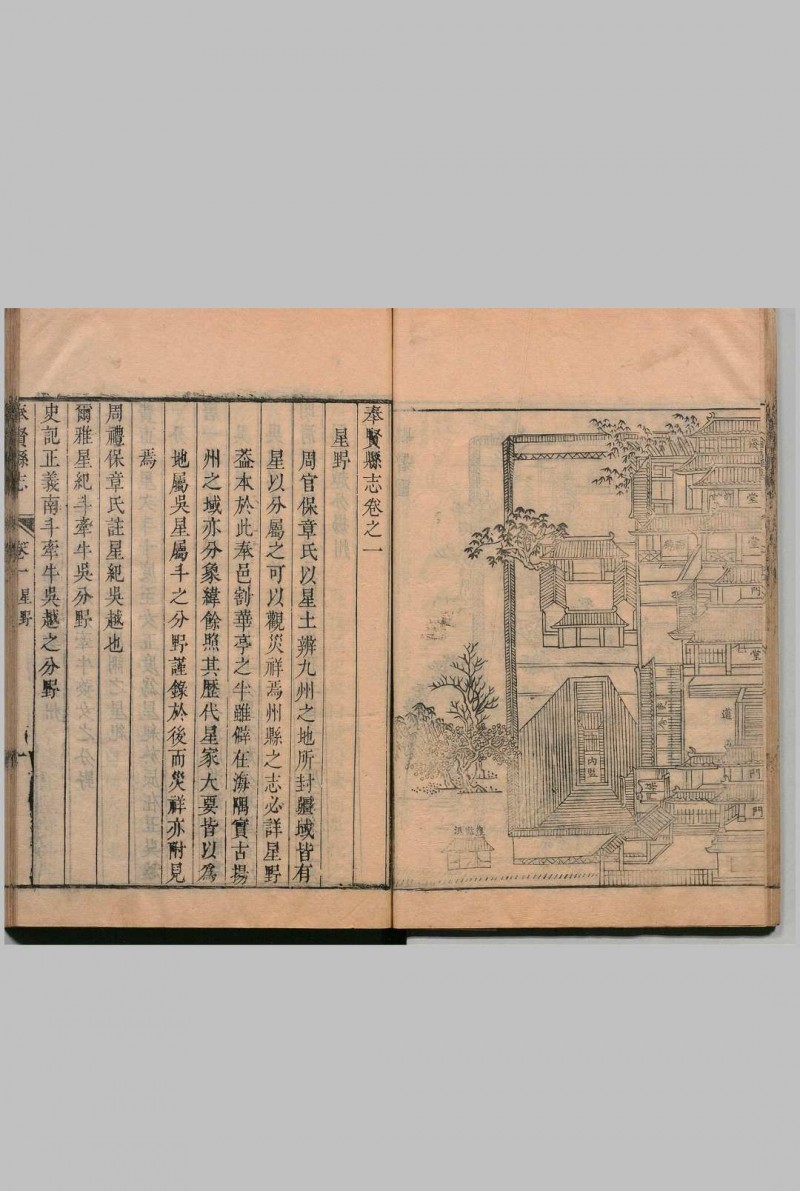 海
堂
堂
門
堂
道
門
門
內監
奉賢縣志卷之一
星野
周官保章氏以星土辨九州之地所封疆域皆有
星以分屬之可以觀災祥焉州縣之志必詳星野
葢本於此奉邑割華亭之半雖僻在海隅實古揚
州之域亦分象緯餘照其歷代星家大要皆以爲
地屬吳星屬斗之分野謹錄於後而災祥亦附見
焉
周禮保章氏註星紀吳越也
爾雅星紀斗牽牛吳分野
史記正義南斗牽牛吳越之分野
奉賢縣志
卷一
星野